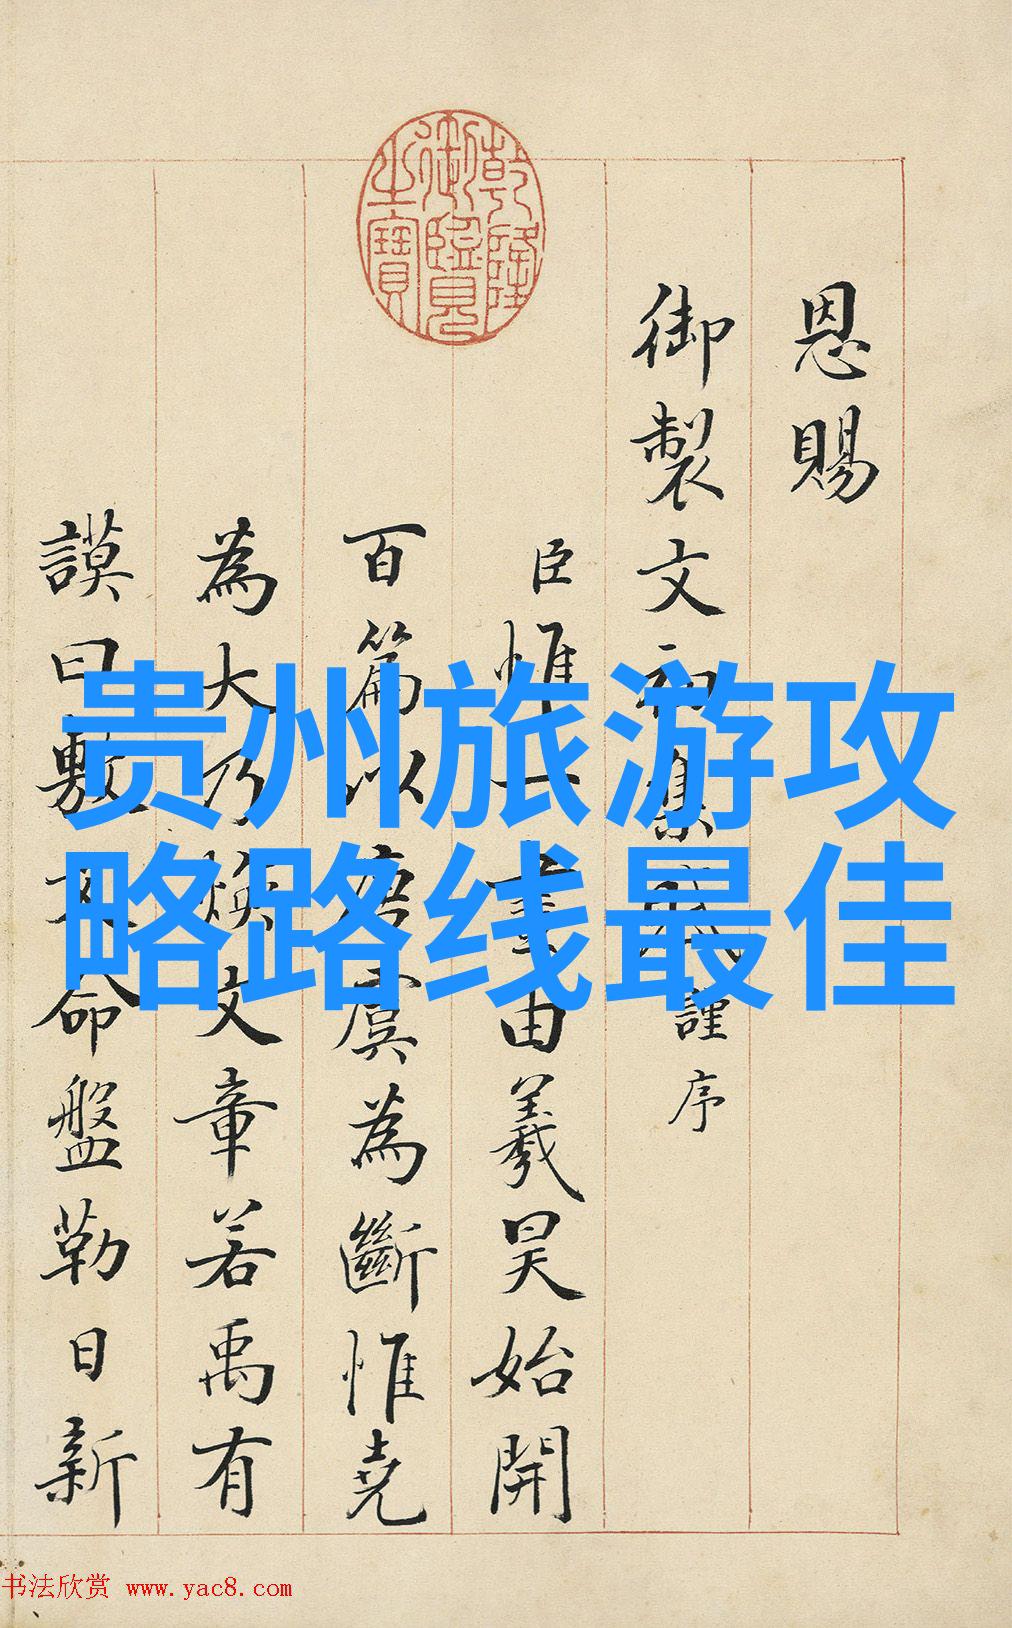 贵州旅游攻
略路线最佳
乾隆御覽之寶
恩賜
御製文初集謹序
臣惟一畫由羲昊始開
百篇以唐虞為斷惟堯
為大乃煥文章若禹有
謨曰敷文命盤勒日新
书法欣赏 www.yac8.com